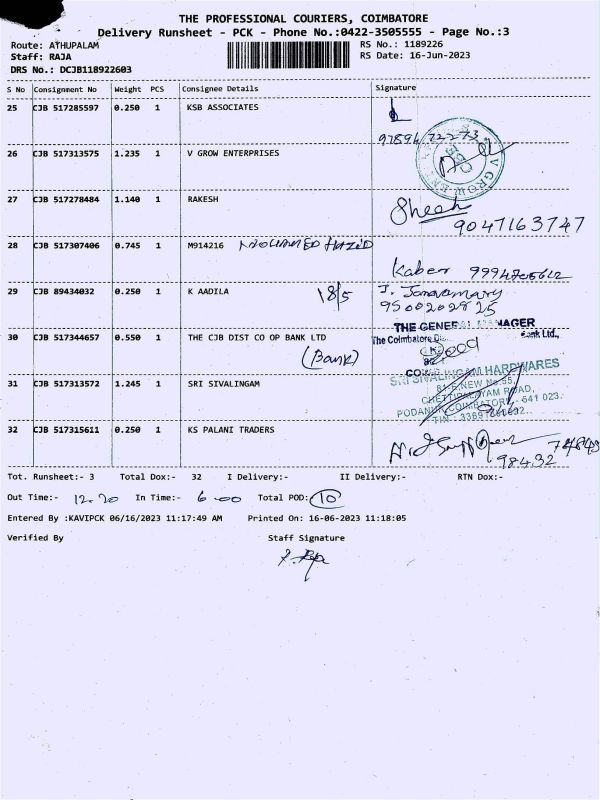 THE PROFESSIONAL COURIERS, COIMBATORE
Delivery Runsheet - PCK - Phone No.:0422-3505555 - Page No.:3
Route: ATHUPALAM RS No.: 1189226
Staff: RAJA RS Date: 16-Jun-2023
DRS No.: DCJB118922603
S No Consignment No Weight PCS Consignee Details Signature
25 CJB 517285597 0.250 1 KSB ASSOCIATES
97894 72273
26 CJB 517313575 1.235 1 V GROW ENTERPRISES
V GROW
27 CJB 517278484 1.140 1 RAKESH
9047163747
28 CJB 517307406 0.745 1 M914216 MOHAMED HAZID
Kaber
29 CJB 89434032 0.250 1 K AADILA 18/5
9500202825
30 CJB 517344657 0.550 1 THE CJB DIST CO OP BANK LTD
(Bank)
THE GENERAL MANAGER
The Coimbatore Bank Ltd.,
31 CJB 517313572 1.245 1 SRI SIVALINGAM
SRI SIVALINGAM HARDWARES
NEW No.55,
CHETTIPALAYAM ROAD,
PODANUR, COIMBATORE - 641 023.
32 CJB 517315611 0.250 1 KS PALANI TRADERS
98432
Tot. Runsheet:- 3 Total Dox:- 32 I Delivery:- II Delivery:- RTN Dox:-
Out Time:- 12.20 In Time:- 6.00 Total POD: 10
Entered By :KAVIPCK 06/16/2023 11:17:49 AM Printed On: 16-06-2023 11:18:05
Verified By Staff Signature